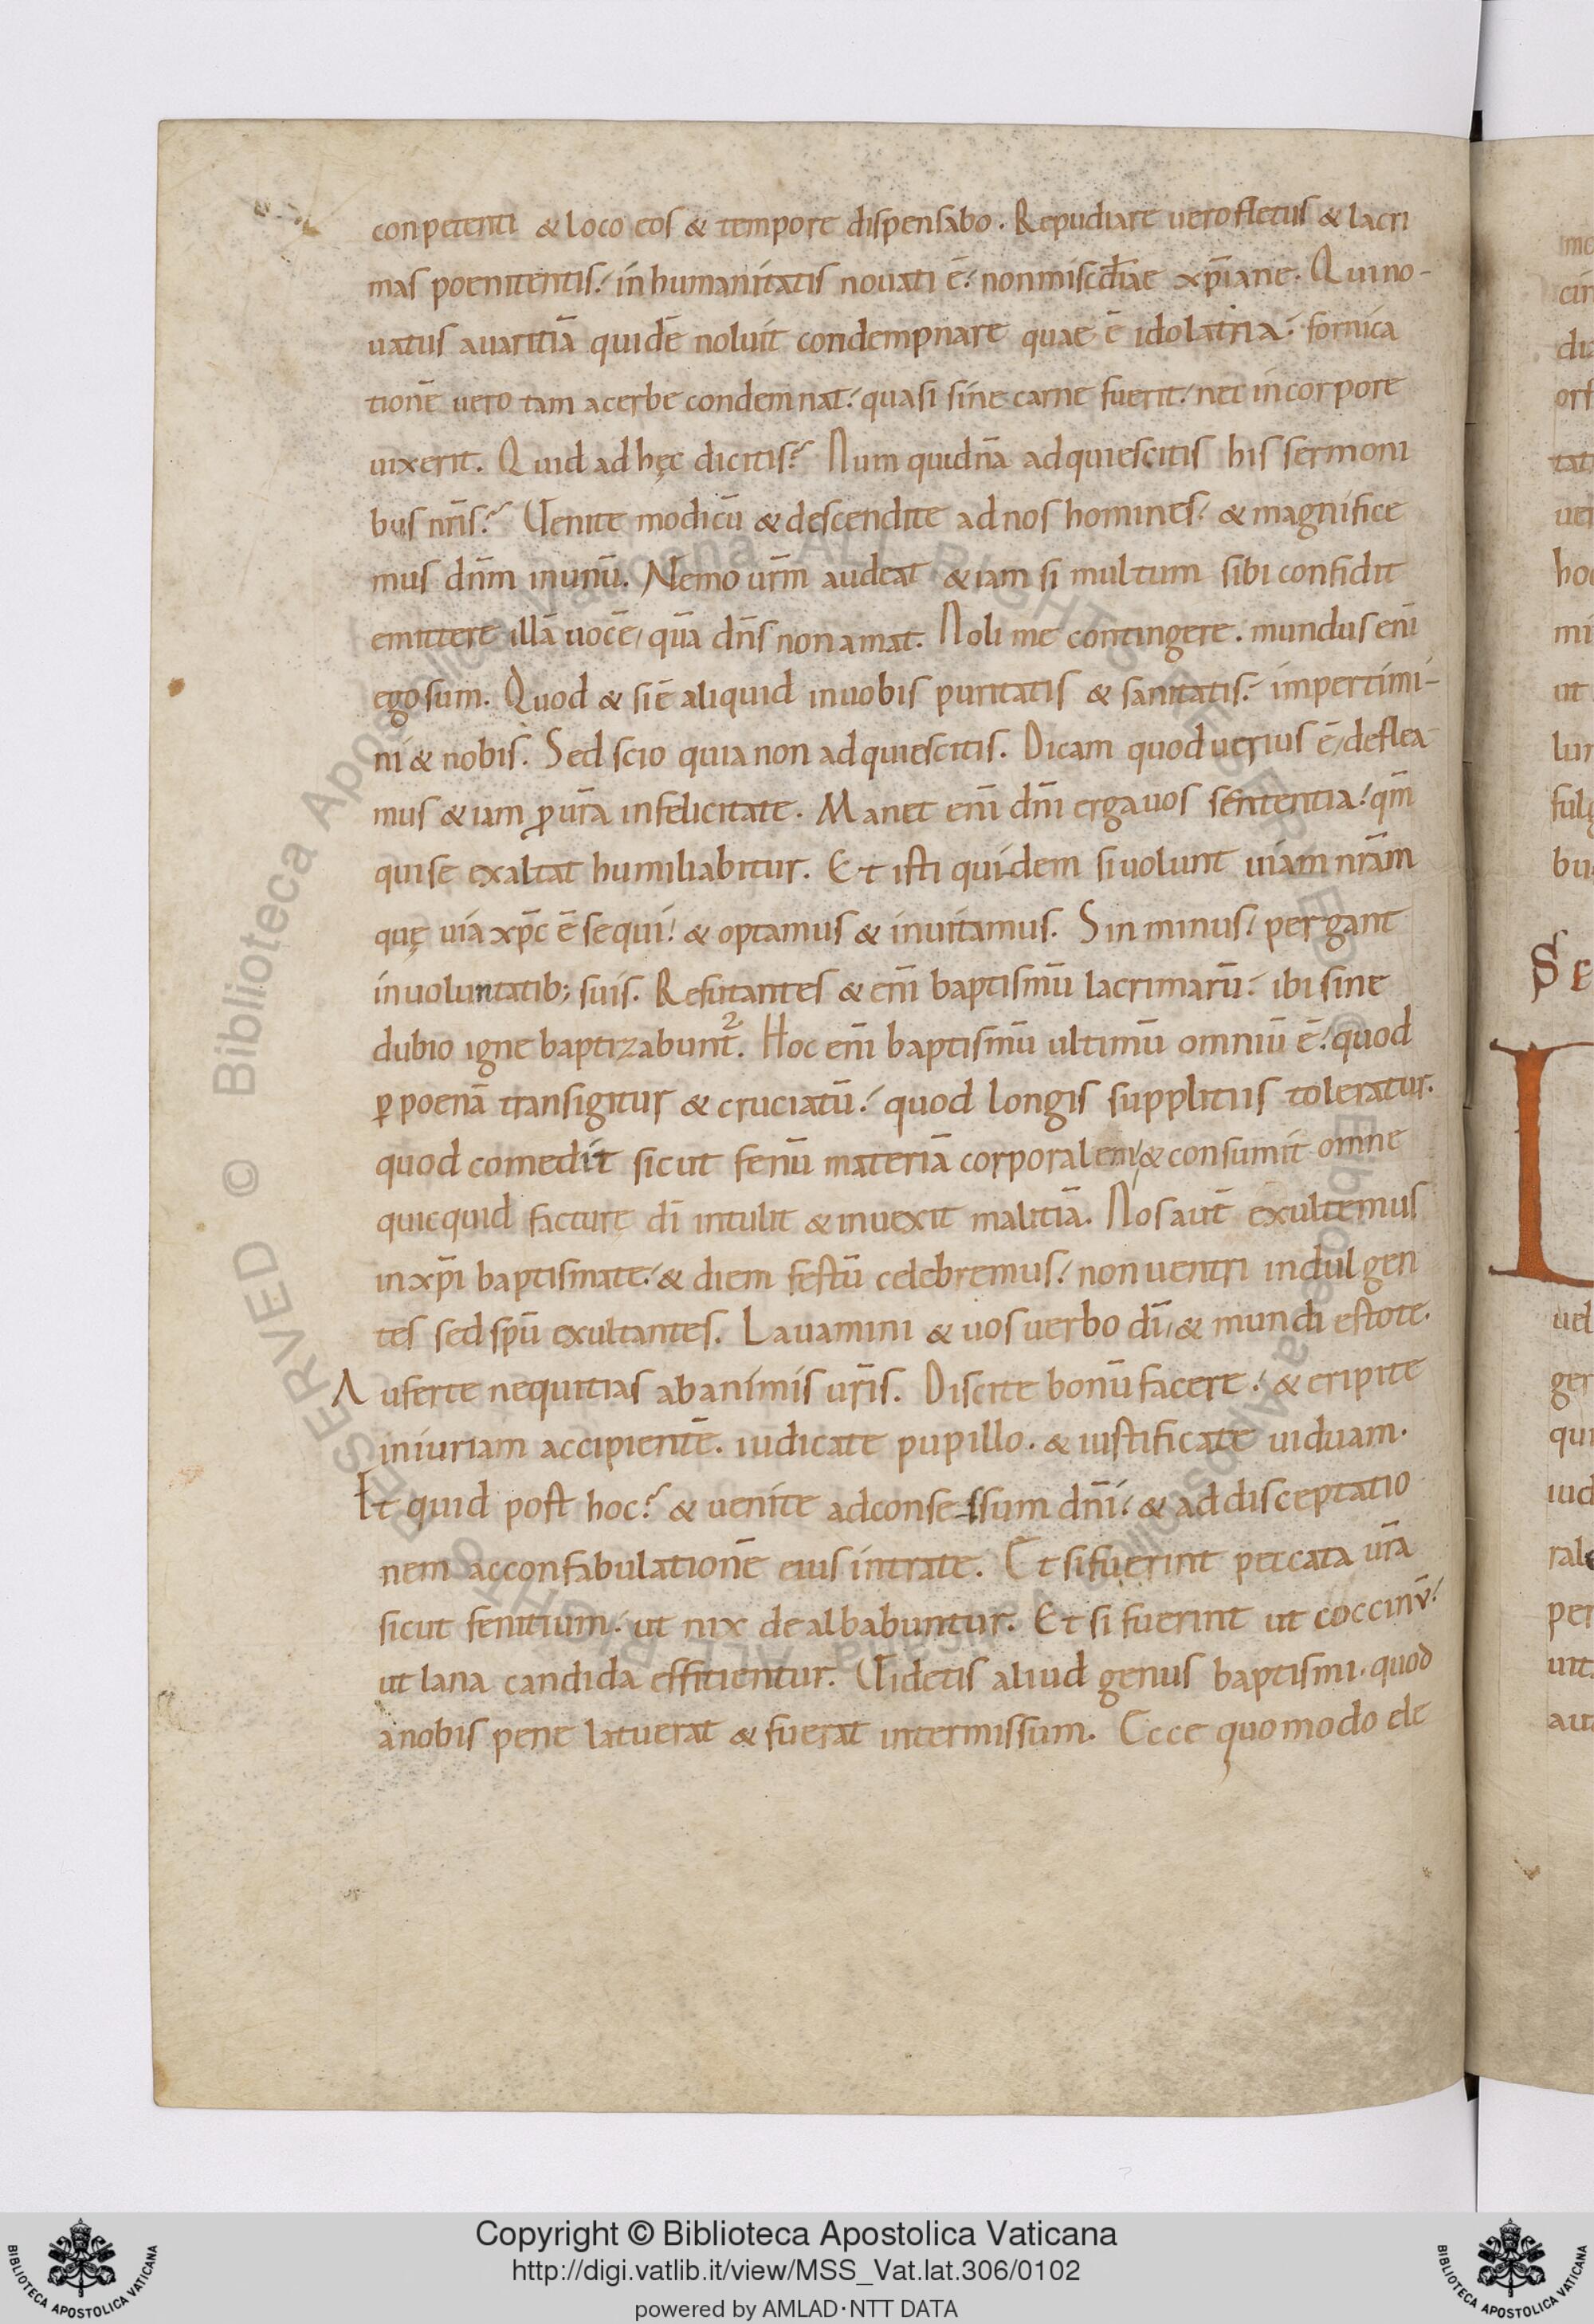 conpetenti & loco eos & tempore dispensabo. Repudiare uero fletus & lacri
mas poenitentis. inhumanitatis nouati ē. non miscdiae xp̄iane. Qui no-
uatus auaritiā quidē noluit condempnare quae ē idolatria. fornica
tionē uero tam acerbe condemnat. quasi sine carne fuerit. nec in corpore
uixerit. Quid ad hęc dicitis? Num quidnā adquiescitis his sermoni
bus nr̄is? Venite modicū & descendite ad nos homines. & magnifice
mus dn̄m inunū. Nemo ur̄m audeat & iam si multum sibi confidit
emittere illā uocē, quā dn̄s non amat. Noli me contingere. mundus eni̅
ego sum. Quod & si ē aliquid in uobis puritatis & sanitatis. impertimi-
ni & nobis. Sed scio quia non adquiescitis. Dicam quod uerius ē, deflea
mus & iam ꝓ ur̄a infelicitate. Manet eni̅ dn̄i erga uos sententia. qm̄
qui se exaltat humiliabitur. Et isti qui-dem si uolunt uiam nr̄am
quę uia xp̄c ē sequi. & optamus & inuitamus. Sin minus. pergant
in uoluntatib; suis. Refutantes & eni̅ baptismū lacrimarū. ibi sine
dubio igne baptizabunt̄². Hoc eni̅ baptismū ultimū omniū ē. quod
ꝑ poenā transigitur & cruciatū. quod longis supplitiis toleratur.
quod comedit sicut fenū materiā corporalem, & consumit omne
quicquid facturę di̅ intulit & inuexit malitiā. Nos aut̄ exultemus
in xp̄i baptismate. & diem festū celebremus. non uentri indulgen
tes sed sp̄u exultantes. Lauamini & uos uerbo di̅, & mundi estote.
Auferte nequitias ab animis ur̄is. Discite bonū facere. & eripite
iniuriam accipientē. iudicate pupillo. & iustificate uiduam.
Et quid post hoc? & uenite ad conse-ssum dn̄i. & ad disceptatio
nem ac confabulationē eius intrate. Et si fuerint peccata ur̄a
sicut fenitium. ut nix dealbabuntur. Et si fuerint ut coccinv̄.
ut lana candida effitientur. Videtis aliud genus baptismi. quod
a nobis pene latuerat & fuerat intermissum. Ecce quomodo ele
Copyright © Biblioteca Apostolica Vaticana
http://digi.vatlib.it/view/MSS_Vat.lat.306/0102
powered by AMLAD·NTT DATA